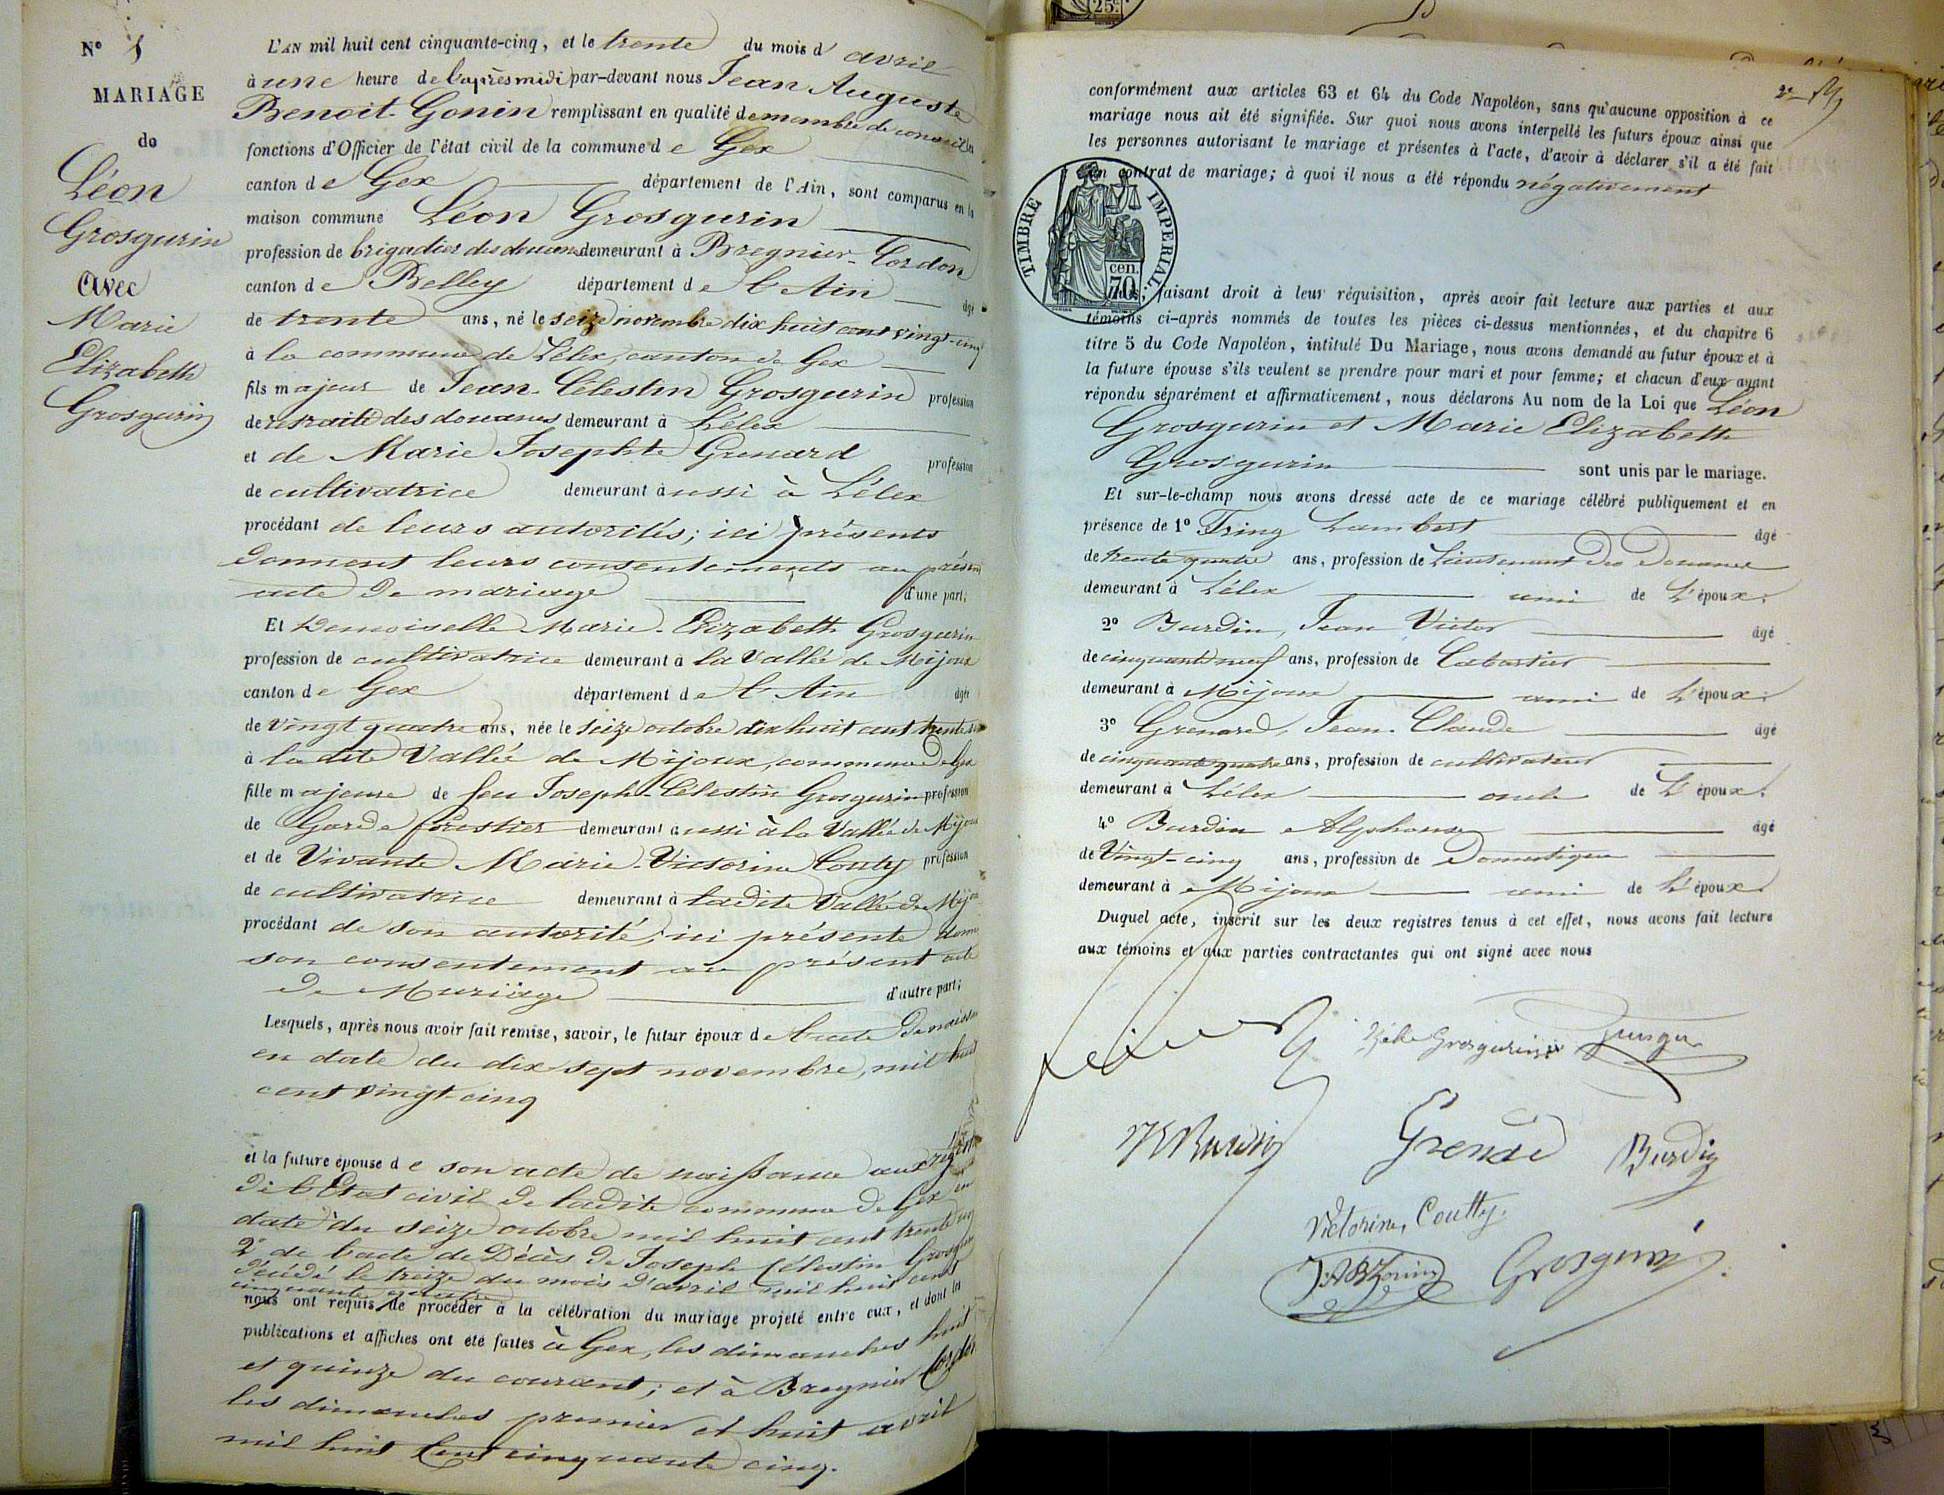 N° 5
MARIAGE
de
Léon
Grosgurin
Avec
Marie
Elizabeth
Grosgurin
L'AN mil huit cent cinquante-cinq, et le trente du mois d'avril
à une heure de l'après midi par-devant nous Jean Auguste
Benoit Gonin remplissant en qualité de membre du conseil les
fonctions d'Officier de l'état civil de la commune de Gex
canton de Gex département de l'Ain, sont comparus en la
maison commune Léon Grosgurin
profession de brigadier des douanes demeurant à Bregnier-Cordon
canton de Belley département de l'Ain âgé
de trente ans, né le seize novembre dix huit cent vingt-cinq
à la commune de Lélex, canton de Gex
fils majeur de Jean-Célestin Grosgurin profession
de retraité des douanes demeurant à Lélex
et de Marie Josephte Grenard profession
de cultivatrice demeurant aussi à Lélex
procédant de leurs autorités; ici présents
donnent leurs consentements au présent
acte de mariage d'une part;
Et Demoiselle Marie-Elizabeth Grosgurin
profession de cultivatrice demeurant à la Vallée de Mijoux
canton de Gex département de l'Ain âgée
de vingt quatre ans, née le seize octobre dix huit cent trente
à la dite Vallée de Mijoux, commune de Gex
fille majeure de feu Joseph-Célestin Grosgurin profession
de Garde forestier demeurant aussi à la Vallée de Mijoux
et de Vivante Marie-Victorine Couty profession
de cultivatrice demeurant à ladite Vallée de Mijoux
procédant de son autorité, ici présente donne
son consentement au présent acte
de Mariage d'autre part;
Lesquels, après nous avoir fait remise, savoir, le futur époux de l'acte de naissance
en date du dix sept novembre, mil huit
cent vingt-cinq
et la future épouse de son acte de naissance aux registres
de l'Etat civil de ladite commune de Gex en
date du seize octobre mil huit cent trente
2° de l'acte de Décès de Joseph Célestin Grosgurin
décédé le treize du mois d'avril mil huit cent
cinquante quatre
nous ont requis de procéder à la célébration du mariage projeté entre eux, et dont les
publications et affiches ont été faites à Gex, les dimanches huit
et quinze du courant; et à Bregnier Cordon
les dimanches premier et huit avril
mil huit cent cinquante cinq.
conformément aux articles 63 et 64 du Code Napoléon, sans qu'aucune opposition à ce
mariage nous ait été signifiée. Sur quoi nous avons interpellé les futurs époux ainsi que
les personnes autorisant le mariage et présentes à l'acte, d'avoir à déclarer s'il a été fait
un contrat de mariage; à quoi il nous a été répondu négativement
TIMBRE IMPERIAL.
70 cen.
Nous, faisant droit à leur réquisition, après avoir fait lecture aux parties et aux
témoins ci-après nommés de toutes les pièces ci-dessus mentionnées, et du chapitre 6
titre 5 du Code Napoléon, intitulé Du Mariage, nous avons demandé au futur époux et à
la future épouse s'ils veulent se prendre pour mari et pour femme; et chacun d'eux ayant
répondu séparément et affirmativement, nous déclarons Au nom de la Loi que Léon
Grosgurin et Marie Elizabeth
Grosgurin sont unis par le mariage.
Et sur-le-champ nous avons dressé acte de ce mariage célébré publiquement et en
présence de 1° Lambert âgé
de trente quatre ans, profession de Lieutenant des Douanes
demeurant à Lélex ami de L'époux.
2° Burdin, Jean Victor âgé
de cinquante neuf ans, profession de Cabartier
demeurant à Mijoux ami de L'époux.
3° Grenard, Jean-Claude âgé
de cinquante quatre ans, profession de cultivateur
demeurant à Lélex oncle de L'époux.
4° Burdin Alphonse âgé
de Vingt-cinq ans, profession de Domestique
demeurant à Mijoux ami de L'époux.
Duquel acte, inscrit sur les deux registres tenus à cet effet, nous avons fait lecture
aux témoins et aux parties contractantes qui ont signé avec nous
Grosgurin
Burdin
Grenard
Burdin
Victorine, Coutty.
J.A.B. Gonin
Grosgurin
25c.